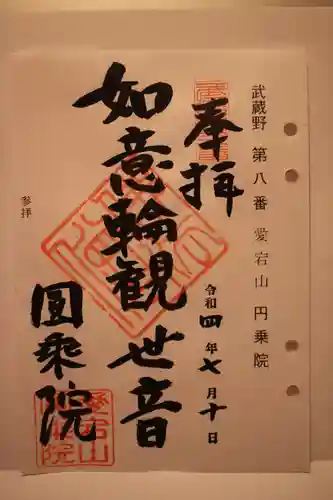 武蔵野 第八番 愛宕山 円乗院
奉拝
令和四年七月十日
如意輪観世音
圓乗院
参拝
愛宕山